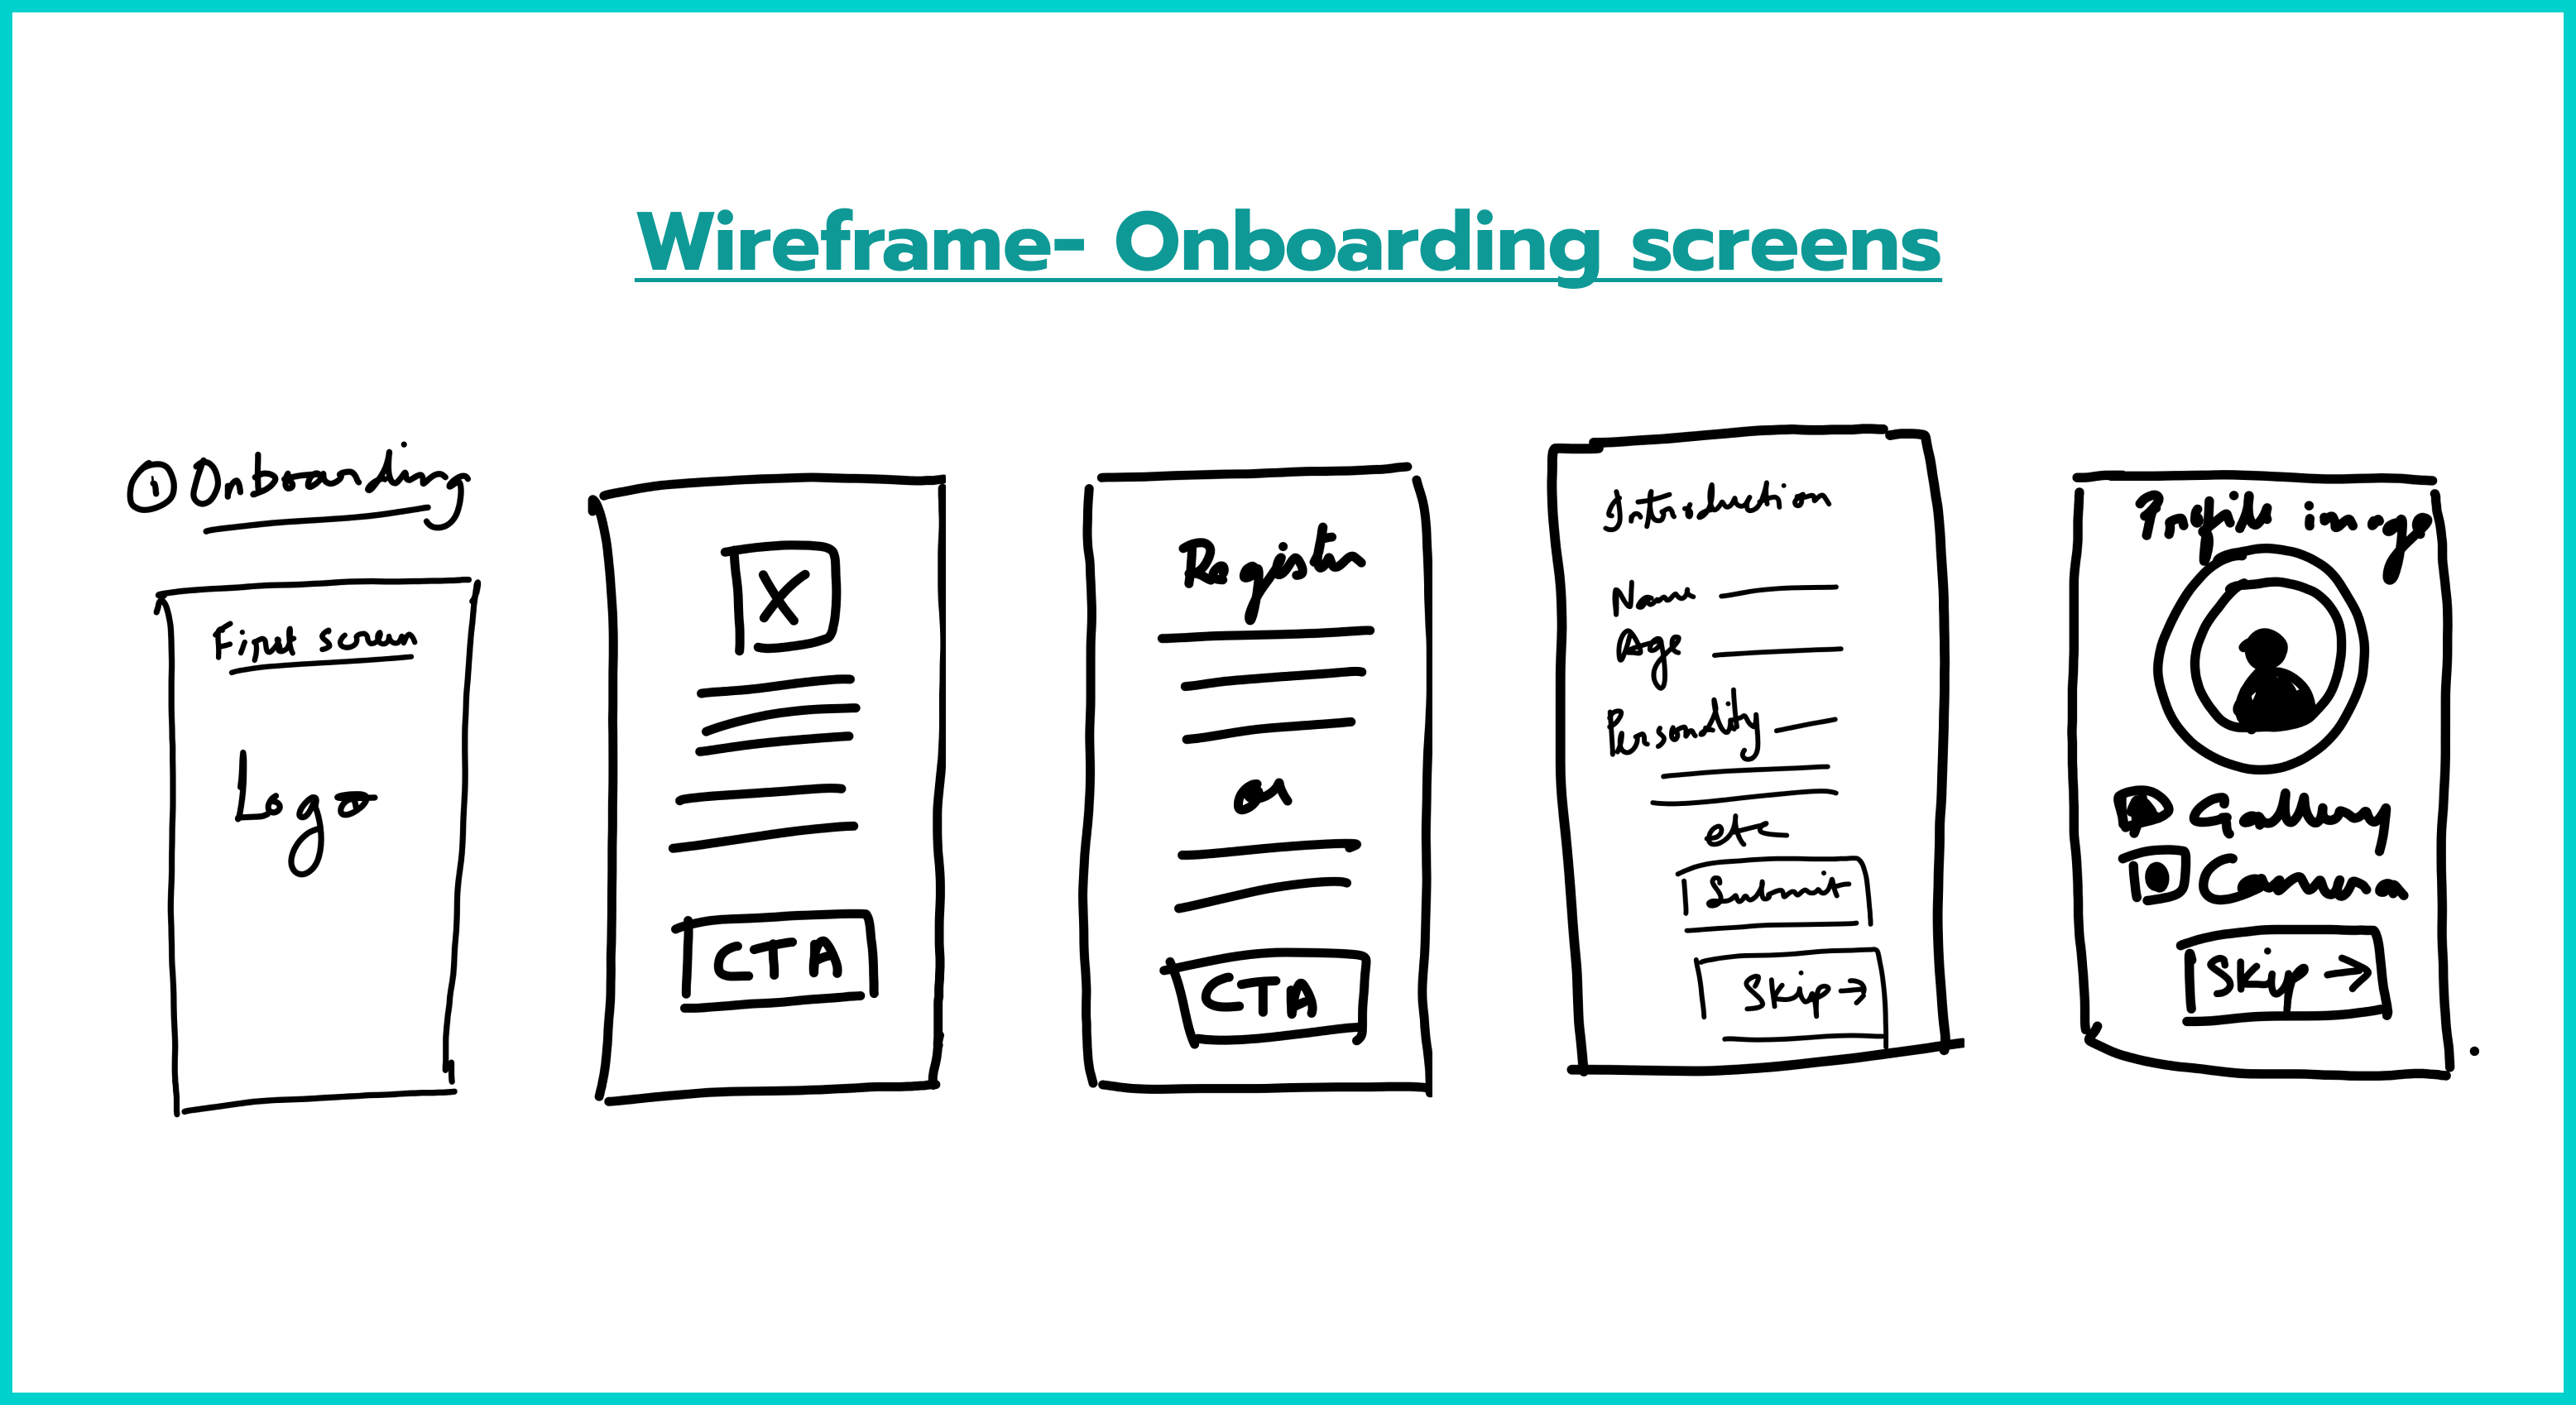 Wireframe- Onboarding screens
① Onboarding
First screen
Logo
X
CTA
Register
or
CTA
Introduction
Name
Age
Personality
etc
Submit
Skip →
Profile image
Gallery
Camera
Skip →